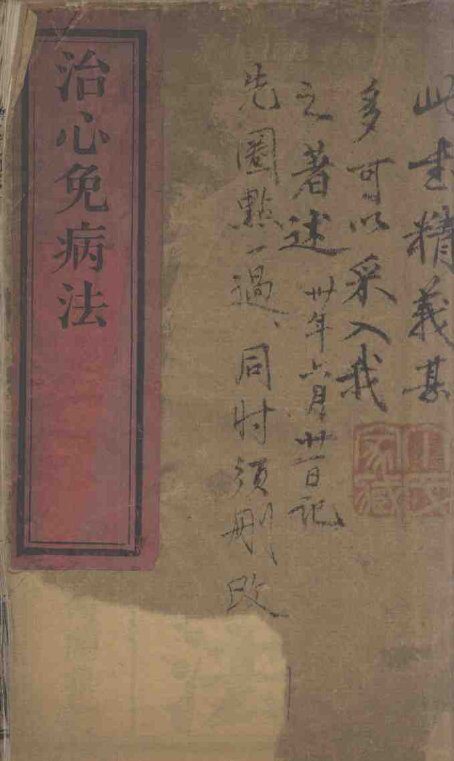 此書精義甚
多可以采入我
之著述 卅年六月廿一日記
先圈點一過、同时須刪改
治心免病法